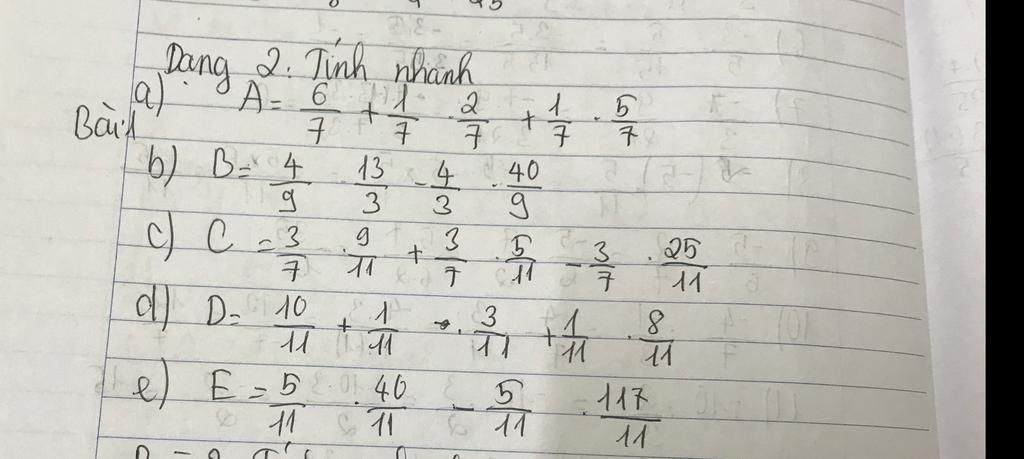 Dạng 2. Tính nhanh
Bài 1 a) A = 6/7 + 1/7 . 2/7 + 1/7 . 5/7
b) B = 4/9 . 13/3 - 4/3 . 40/9
c) C = 3/7 . 9/11 + 3/7 . 5/11 - 3/7 . 25/11
d) D = 10/11 + 1/11 . 3/11 + 1/11 . 8/11
e) E = 5/11 . 40/11 - 5/11 . 117/11